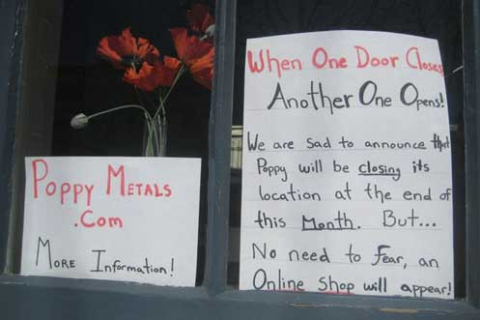 Poppy Metals
.Com
More Information!
When One Door Closes
Another One Opens!
We are sad to announce that
Poppy will be closing its
location at the end of
this Month. But...
No need to fear, an
Online Shop will appear!